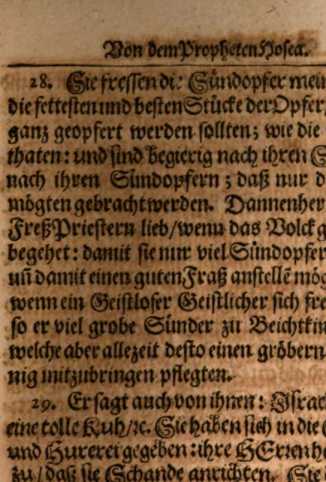 Von dem Propheten Hosea.
28. Sie fressen die Sündopfer mein
die fettesten und besten Stücke der Opfer/
ganz geopfert werden sollten; wie die
thaten: und sind begierig nach ihren S
nach ihren Sündopfern; daß nur d
mögten gebracht werden. Dannenher
FreßPriestern lieb/wenn das Volck g
begehet: damit sie nur viel Sündopfer
uñ damit einen guten Fraß anstellẽ mög
wenn ein Geistloser Geistlicher sich fre
so er viel grobe Sünder zu Beichtkin
welche aber allezeit desto einen gröbern
nig mitzubringen pflegten.
29. Er sagt auch von ihnen: Israe
eine tolle Kuh/ꝛc. Sie haben sich in die
und Hurerei gegeben: ihre HErren h
zu/daß sie Schande anrichten. Sie